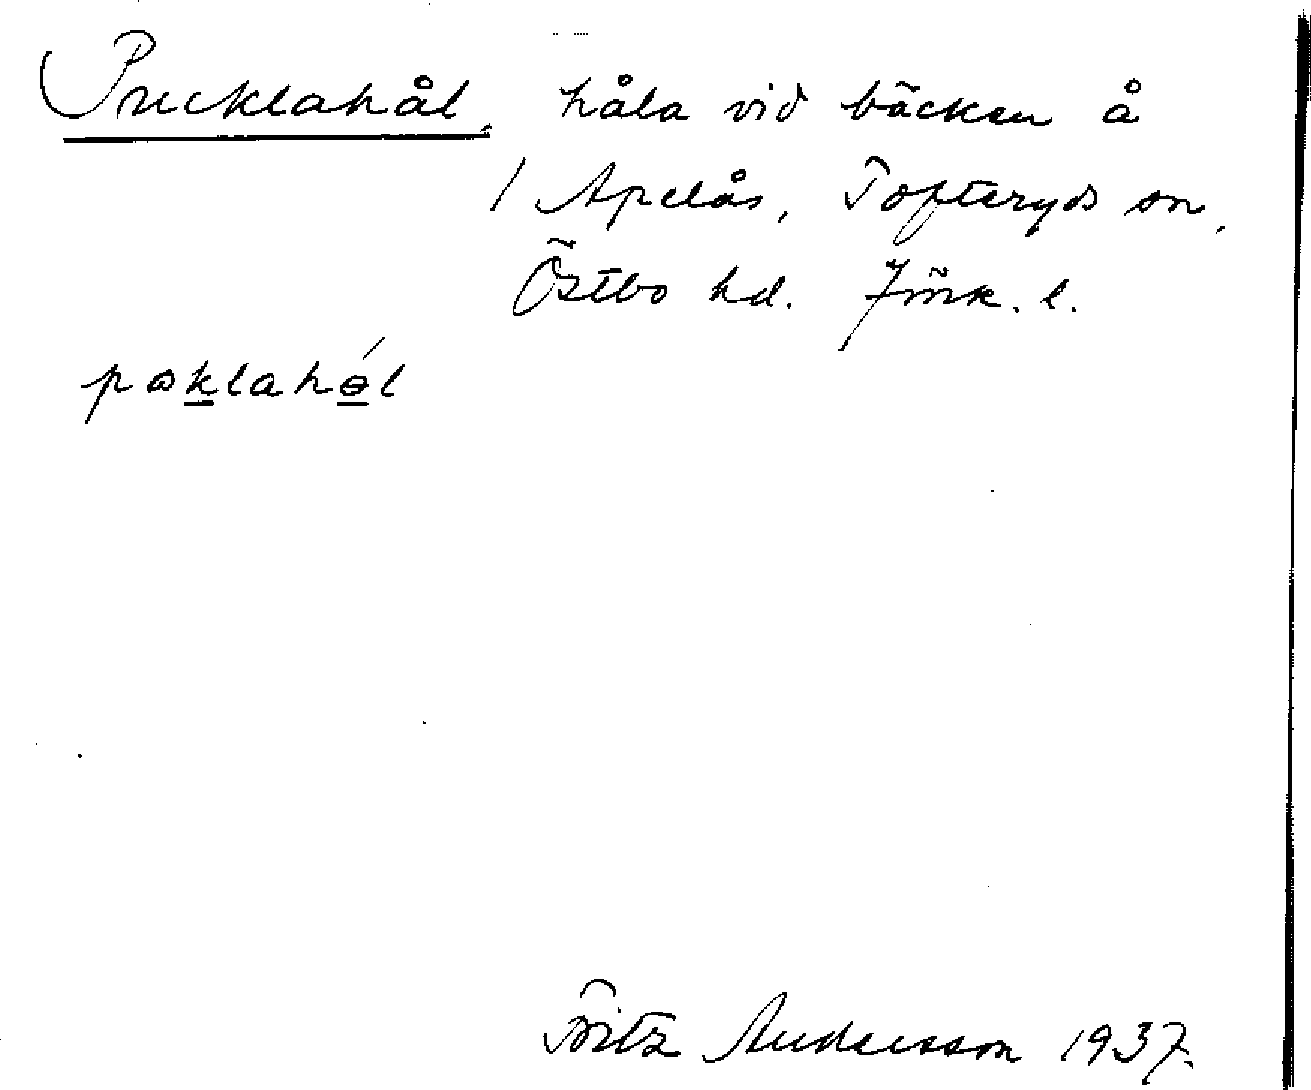 Pucklahål, håla vid bäcken å
/ Apelås, Tofteryds sn,
Östbo hd. Jönk. l.
pɷklahól
Fritz Andersson 1937.